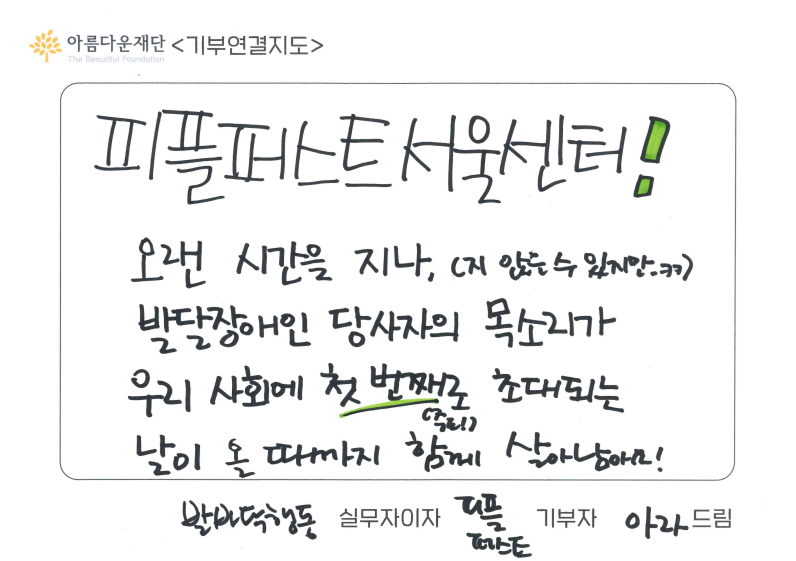 아름다운재단 <기부연결지도>
The Beautiful Foundation
피플퍼스트서울센터!
오랜 시간을 지나, (지 않는 수 있지만..ㅋㅋ)
발달장애인 당사자의 목소리가
우리 사회에 첫 번째로 초대되는
(주로!)
날이 올 때까지 함께 살아남아요!
발바닥행동 실무자이자 피플
퍼스트 기부자 아라 드림